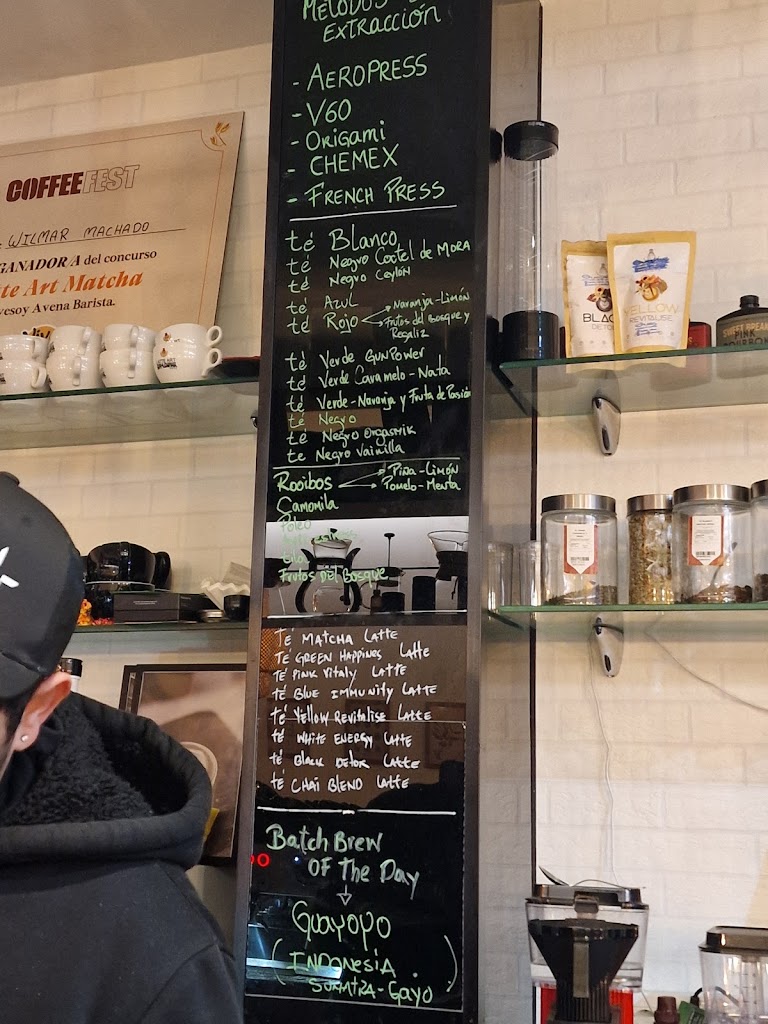 COFFEE FEST
WILMAR MACHADO
GANADOR/A del concurso
Art Matcha
Avena Barista.
MÉTODOS
EXTRACCIÓN
- AEROPRESS
- V60
- ORIGAMI
- CHEMEX
- FRENCH PRESS
té Blanco
té Negro Coctel de MORA
té Negro Ceylón
té AZUL
té Rojo
Naranja-Limón
Frutos del Bosque y
Regaliz
té Verde GUNPOWER
té Verde Caramelo-Nata
té Verde-Naranja y Fruta de Pasión
té Negro
té Negro Orgasmik
te Negro Vainilla
Rooibos
Piña-Limón
Pomelo-Menta
Camomila
Poleo
Frutos del Bosque
TÉ MATCHA LATTE
TÉ GREEN HAPPINES LATTE
TÉ PINK VITALY LATTE
TÉ BLUE IMMUNITY LATTE
TÉ YELLOW REVITALISE LATTE
TÉ WHITE ENERGY LATTE
TÉ BLACK DETOX LATTE
TÉ CHAI BLEND LATTE
Batch Brew
OF The Day
Guayopo
(INDONESIA
SUMATRA-Gayo)
BLACK
DETOX
YELLOW
REVITALISE
SWEET
PINK
BOURBON